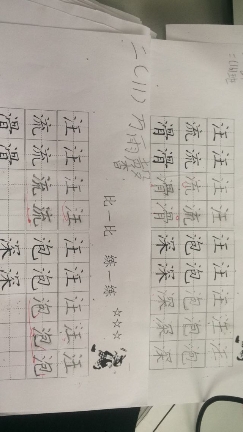 汪汪汪汪汪汪汪汪
流流流流泡泡泡泡
滑滑滑滑深深深深
二(11) 万雨馨
比一比 练一练 ☆☆☆
汪汪汪汪汪汪汪汪
流流流流泡泡泡泡
滑滑深深